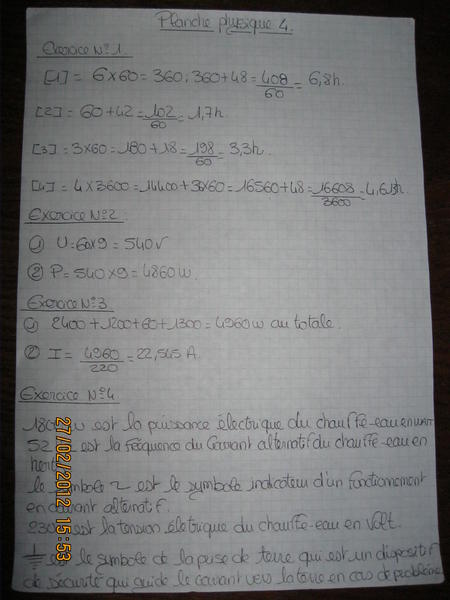 Planche physique 4.
Exercice N°1.
[1] = 6x60 = 360 ; 360+48 = 408/60 = 6,8h
[2] = 60+42 = 102/60 = 1,7h
[3] = 3x60 = 180+18 = 198/60 = 3,3h
[4] = 4x3600 = 14400+36x60 = 16560+48 = 16608/3600 = 4,613h
Exercice N°2
① U = 60x9 = 540v
② P = 540x9 = 4860w.
Exercice N°3
① 2400+1200+60+1300 = 4960w au totale.
② I = 4960/220 = 22,545 A.
Exercice N°4
w est la puissance électrique du chauffe-eau en watt
est la fréquence du courant alternatif du chauffe-eau en
hertz
le symbole ~ est le symbole indicateur d'un fonctionement
en courant alternatif.
230 est la tension életrique du chauffe-eau en Volt.
⏚ est le symbole de la prise de terre qui est un dispositif
de sécurité qui guide le courant vers la terre en cas de problème
27/02/2012 15:53